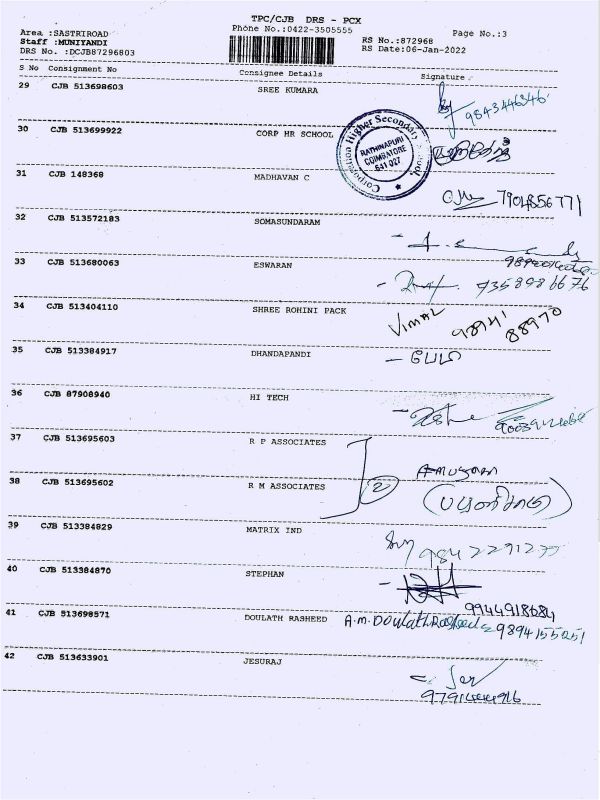 TPC/CJB DRS - PCX
Phone No.:0422-3505555
Page No.:3
Area :SASTRIROAD
Staff :MUNIYANDI
DRS No. :DCJB87296803
RS No.:872968
RS Date:06-Jan-2022
S No Consignment No Consignee Details Signature
29 CJB 513698603 SREE KUMARA
9843446346
30 CJB 513699922 CORP HR SCHOOL
Corporation Higher Secondary School,
RATHINAPURI
COIMBATORE
641 027
31 CJB 148368 MADHAVAN C
7904856771
32 CJB 513572183 SOMASUNDARAM
33 CJB 513680063 ESWARAN
9358986676
34 CJB 513404110 SHREE ROHINI PACK
VIMAL 98941 88970
35 CJB 513384917 DHANDAPANDI
36 CJB 87908940 HI TECH
37 CJB 513695603 R P ASSOCIATES
38 CJB 513695602 R M ASSOCIATES
2
39 CJB 513384829 MATRIX IND
40 CJB 513384870 STEPHAN
9944918684
41 CJB 513698571 DOULATH RASHEED A.M.Doulath Rasheed
9894155251
42 CJB 513633901 JESURAJ